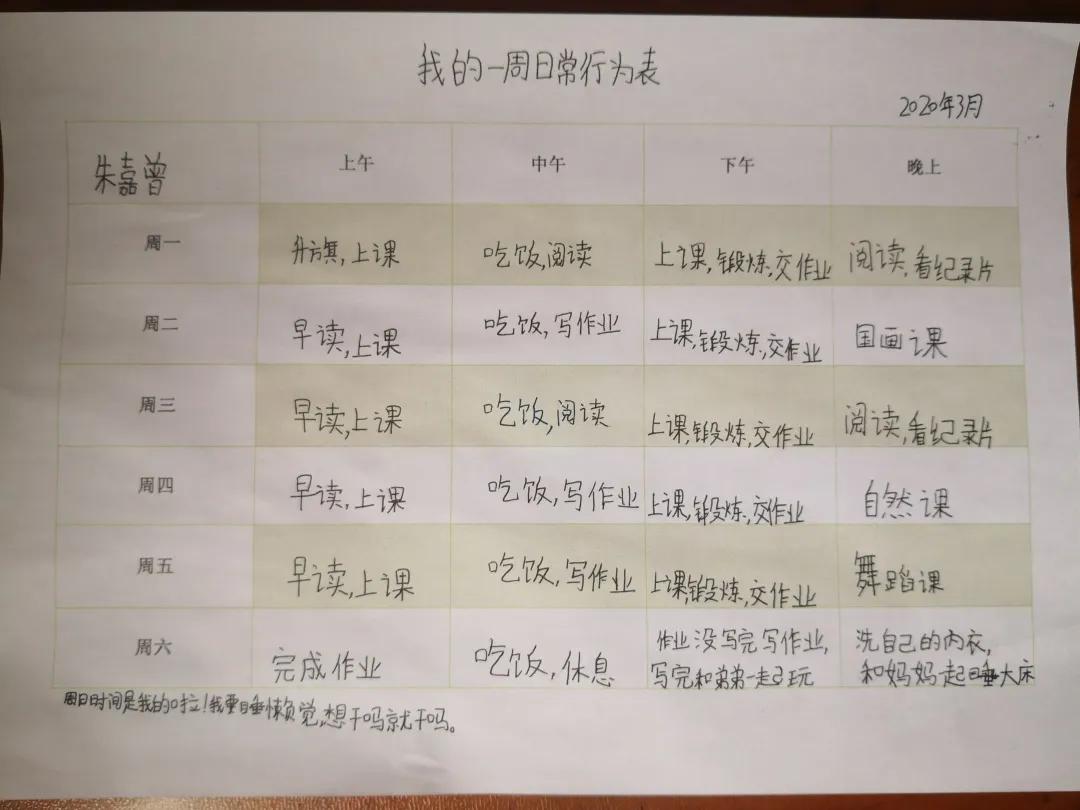 我的一周日常行为表
2020年3月
朱嘉曾 上午 中午 下午 晚上
周一 升旗,上课 吃饭,阅读 上课,锻炼,交作业 阅读,看纪录片
周二 早读,上课 吃饭,写作业 上课,锻炼,交作业 国画课
周三 早读,上课 吃饭,阅读 上课,锻炼,交作业 阅读,看纪录片
周四 早读,上课 吃饭,写作业 上课,锻炼,交作业 自然课
周五 早读,上课 吃饭,写作业 上课,锻炼,交作业 舞蹈课
周六 完成作业 吃饭,休息 作业没写完写作业, 洗自己的内衣,
写完和弟弟一起玩 和妈妈一起睡大床
周日时间是我的啦!我要睡懒觉,想干吗就干吗。